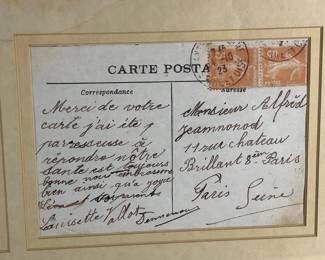 CARTE POSTA
Correspondance
Adresse
Merci de votre
carte j'ai été
paresseuse à
répondre nôtre
santé est toujours
bonne nous
bien ainsi qu'a
Louisette
Monsieur Alfred
Jeamnonod
11 rue chateau
Brillant 8en Paris
Paris
Seine